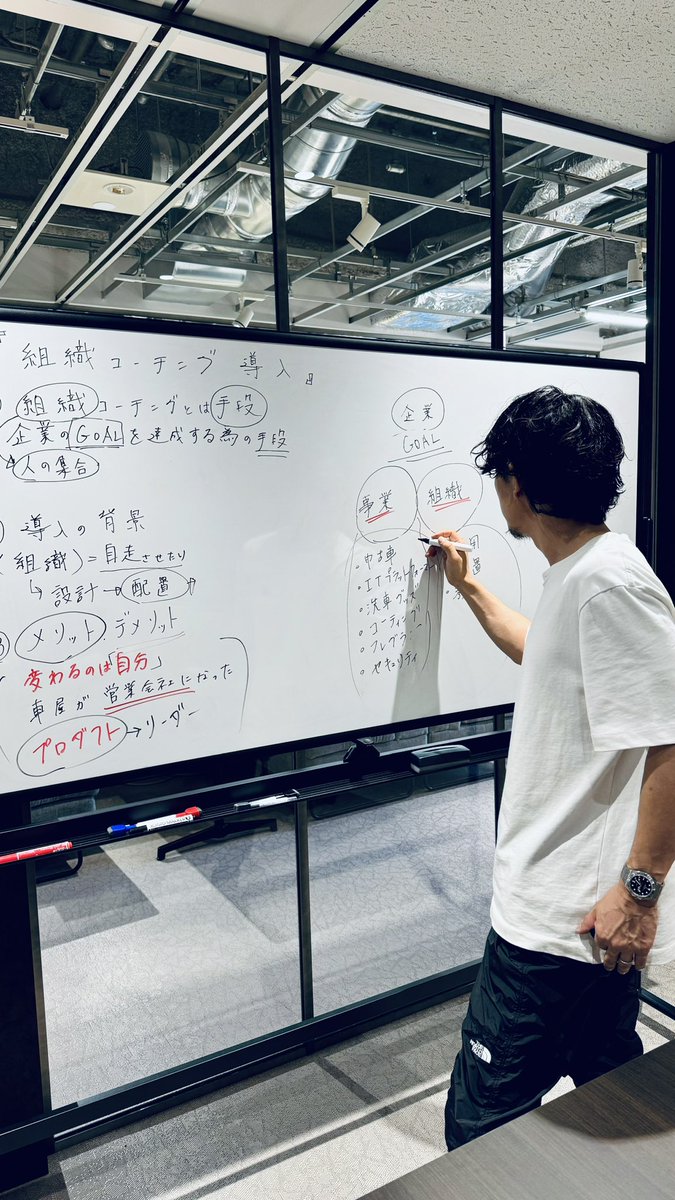 『組織コーチング導入』
組織コーチングとは手段
企業のGOALを達成する為の手段
人の集合
導入の背景
(組織)=自走させたり
↳設計→配置
③メリット、デメリット
変わるのは「自分」
車屋が営業会社になった
プロダクト→リーダー
企業
GOAL
事業
組織
・中古車
・ITプラット
・洗車グッズ
・コーティング
・セキュリティ
置